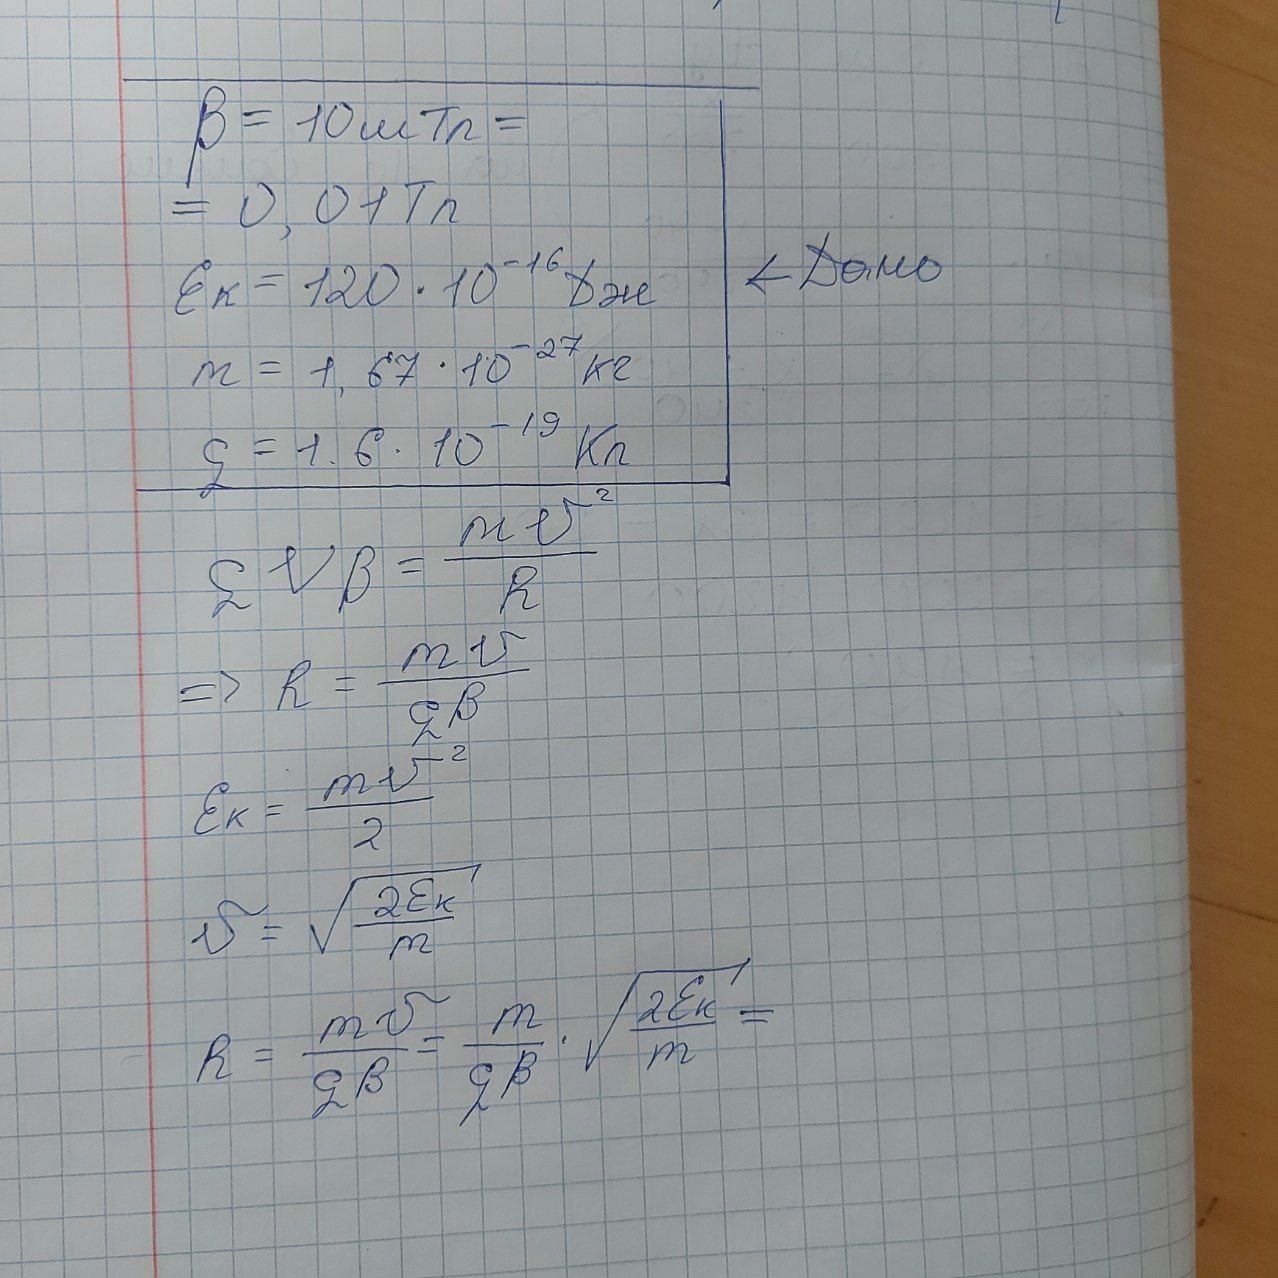 B = 10 мТл =
= 0,01 Тл
Eк = 120 · 10⁻¹⁶ Дж
← Дано
m = 1,67 · 10⁻²⁷ кг
q = 1.6 · 10⁻¹⁹ Кл
q v B = mv² / R
=> R = mv / qB
Eк = mv² / 2
v = √(2Eк / m)
R = mv / qB = m / qB · √(2Eк / m) =